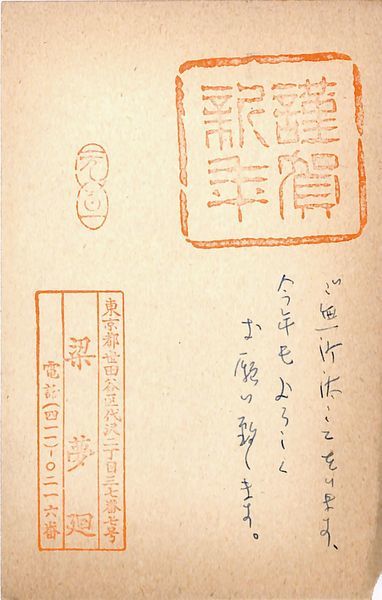 謹賀
新年
ご無沙汰して居ります、
今年もよろしく
お願い致します。
元旦
東京都世田谷区代沢二丁目三七番七号
梁夢廻
電話(四一一)-〇二一六番